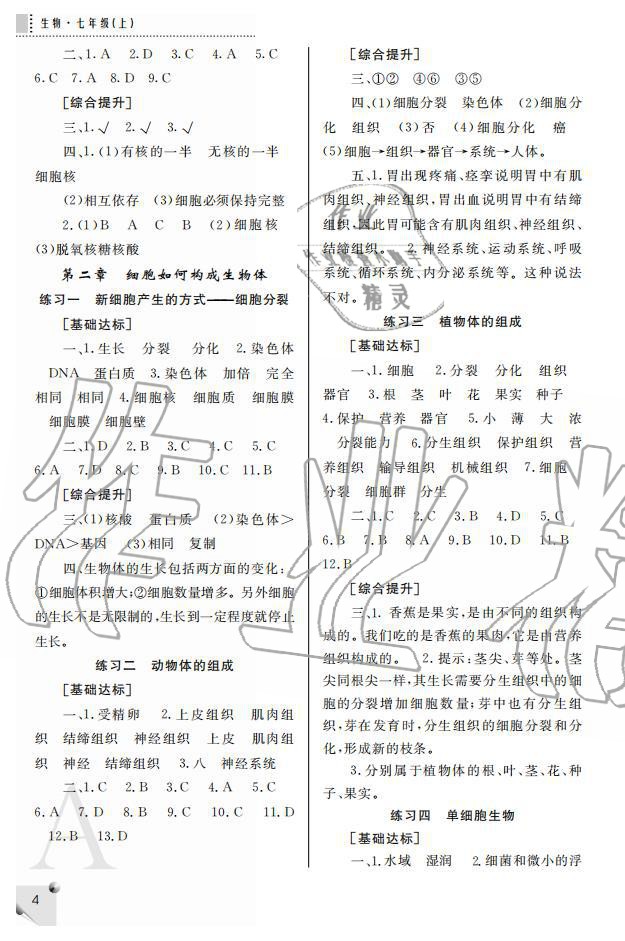 生物·七年级(上)
二、1.A 2.D 3.C 4.A 5.C
6.C 7.A 8.D 9.C
[综合提升]
三、1.√ 2.√ 3.√
四、1.(1)有核的一半 无核的一半
细胞核
(2)相互依存 (3)细胞必须保持完整
2.(1)B A C B (2)细胞核
(3)脱氧核糖核酸
第二章 细胞如何构成生物体
练习一 新细胞产生的方式——细胞分裂
[基础达标]
一、1.生长 分裂 分化 2.染色体
DNA 蛋白质 3.染色体 加倍 完全
相同 相同 4.细胞核 细胞质 细胞膜
细胞膜 细胞壁
二、1.D 2.B 3.C 4.C 5.C
6.A 7.D 8.C 9.B 10.C 11.B
[综合提升]
三、(1)核酸 蛋白质 (2)染色体>
DNA>基因 (3)相同 复制
四、生物体的生长包括两方面的变化:
①细胞体积增大;②细胞数量增多。另外细胞
的生长不是无限制的,生长到一定程度就停止
生长。
练习二 动物体的组成
[基础达标]
一、1.受精卵 2.上皮组织 肌肉组
织 结缔组织 神经组织 上皮 肌肉组
织 神经 结缔组织 3.八 神经系统
二、1.C 2.B 3.C 4.A 5.C
6.A 7.D 8.B 9.C 10.C 11.D
12.B 13.D
[综合提升]
三、①② ④⑥ ③⑤
四、(1)细胞分裂 染色体 (2)细胞分
化 组织 (3)否 (4)细胞分化 癌
(5)细胞→组织→器官→系统→人体。
五、1.胃出现疼痛、痉挛说明胃中有肌
肉组织、神经组织,胃出血说明胃中有结缔
组织,因此胃可能含有肌肉组织、神经组织、
结缔组织。 2.神经系统、运动系统、呼吸
系统、循环系统、内分泌系统等。这种说法
不对。
练习三 植物体的组成
[基础达标]
一、1.细胞 2.分裂 分化 组织
器官 3.根 茎 叶 花 果实 种子
4.保护 营养 器官 5.小 薄 大 浓
分裂能力 6.分生组织 保护组织 营
养组织 输导组织 机械组织 7.细胞
分裂 细胞群 分生
二、1.C 2.C 3.B 4.D 5.C
6.B 7.B 8.A 9.B 10.D 11.B
12.B
[综合提升]
三、1.香蕉是果实,是由不同的组织构
成的。我们吃的是香蕉的果肉,它是由营养
组织构成的。 2.提示:茎尖、芽等处。茎
尖同根尖一样,其生长需要分生组织中的细
胞的分裂增加细胞数量;芽中也有分生组
织,芽在发育时,分生组织的细胞分裂和分
化,形成新的枝条。
3.分别属于植物体的根、叶、茎、花、种
子、果实。
练习四 单细胞生物
[基础达标]
一、1.水域 湿润 2.细菌和微小的浮
4
作业
精灵
作业精
A